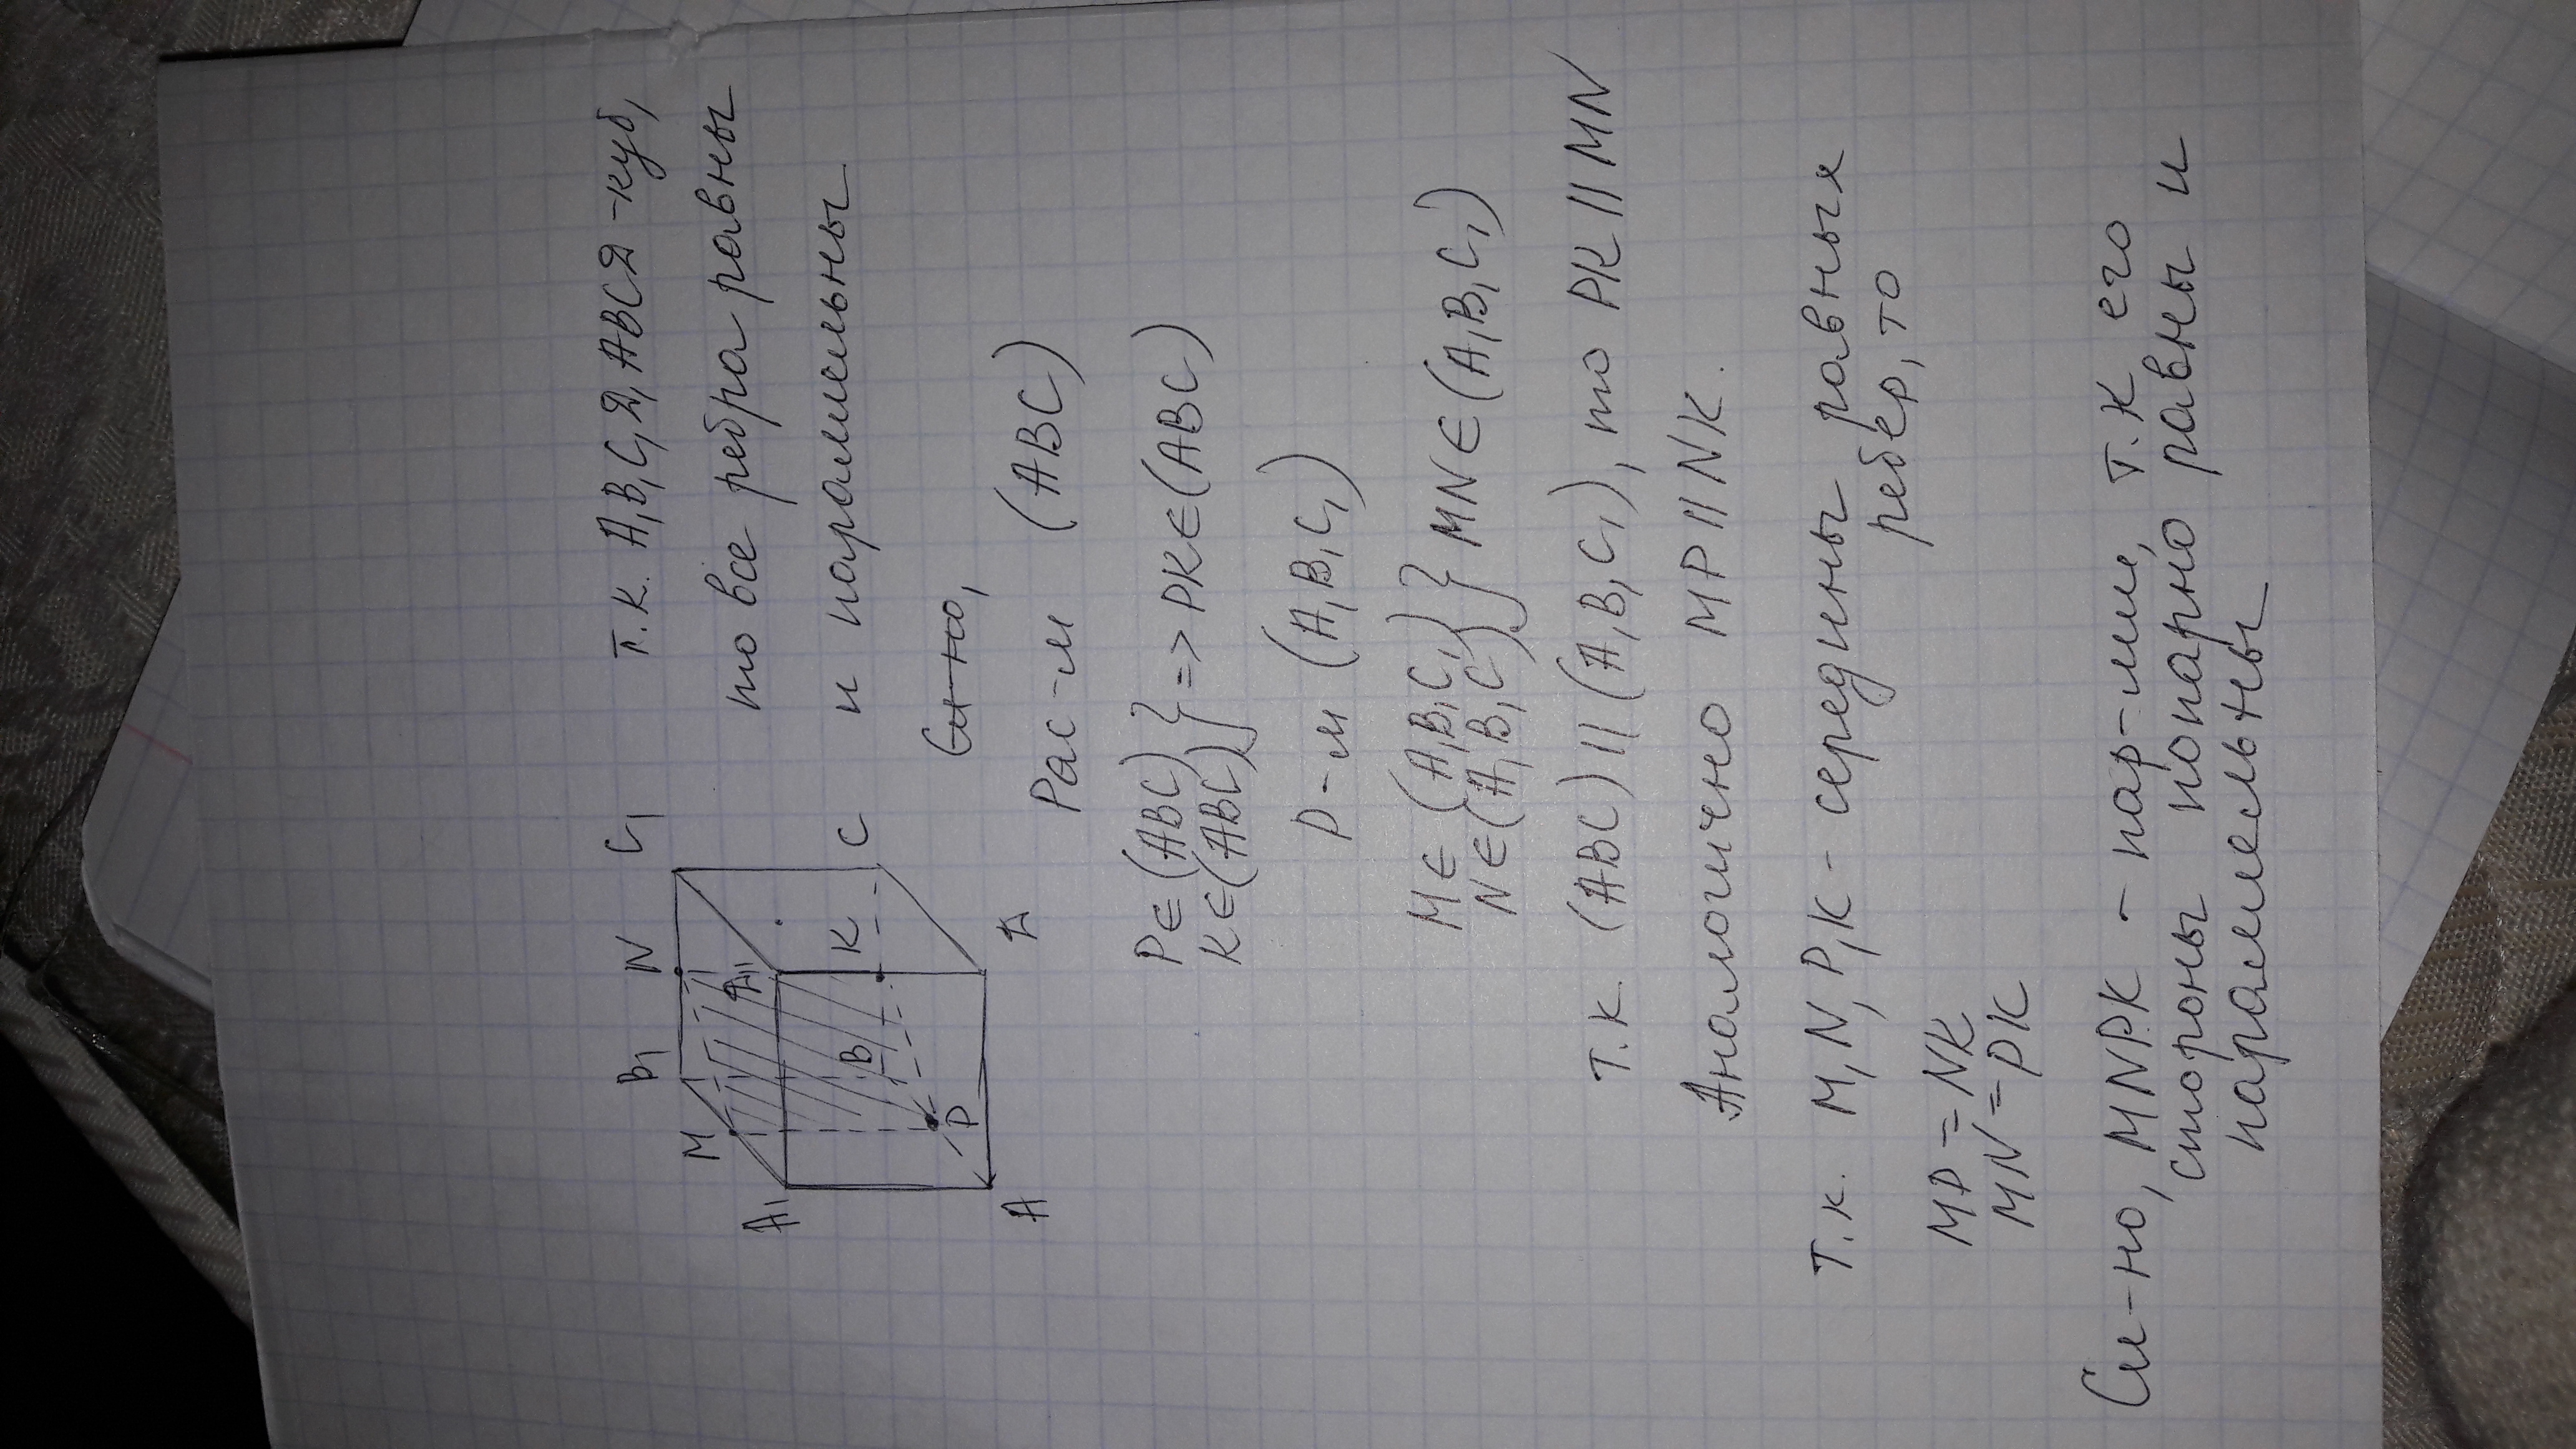 B₁ N C₁
M
A₁ Д₁
B K C
P
A Д
т.к. A₁B₁C₁Д₁ABCД -куб,
то все ребра равны
и параллельны
См-но,
Рас-м (ABC)
P∈(ABC)
K∈(ABC) } => PK∈(ABC)
Р-м (A₁B₁C₁)
M∈(A₁B₁C₁)
N∈(A₁B₁C₁) } MN∈(A₁B₁C₁)
т.к. (ABC)||(A₁B₁C₁), то PK||MN
Аналогично MP||NK.
т.к. M,N,P,K- середины равных
ребер, то
MP=NK
MN=PK
Сл-но, MNPK - пар-мм, т.к его
стороны попарно равны и
параллельны